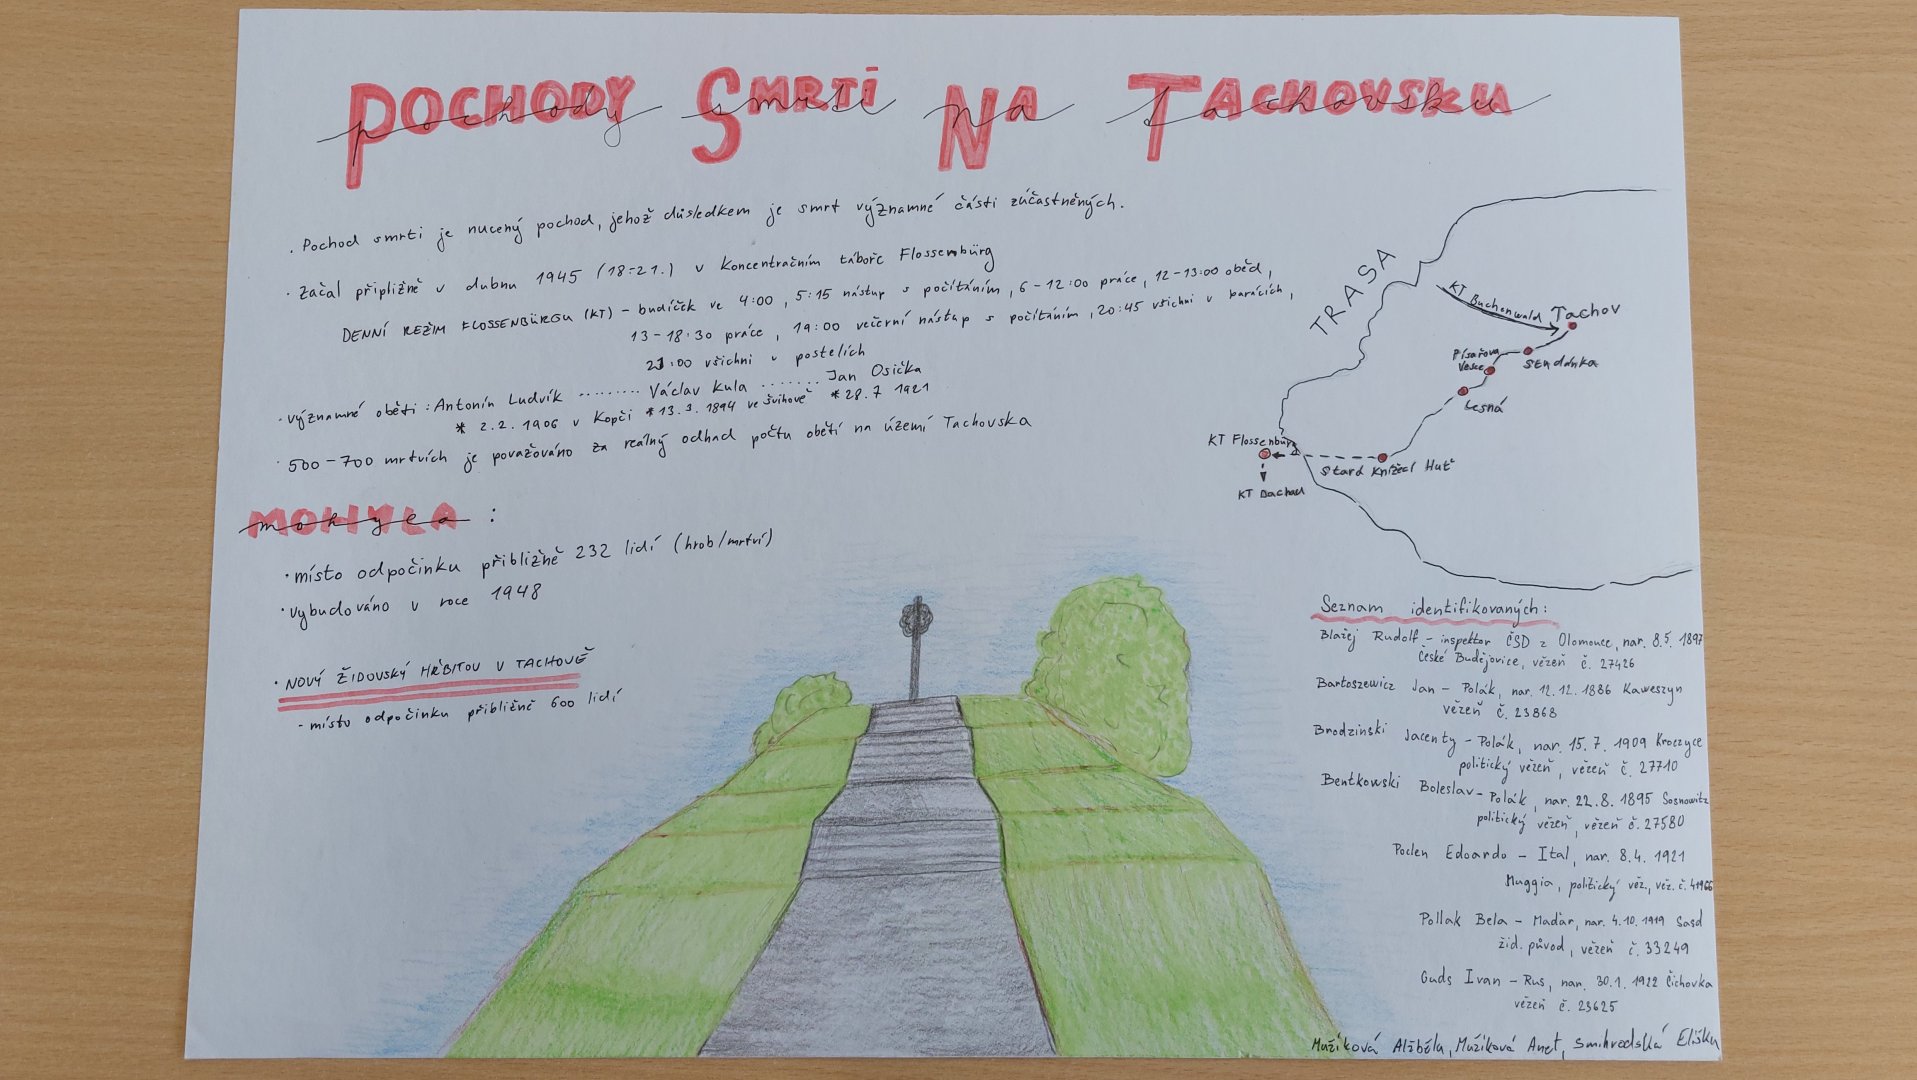 POCHODY SMRTI NA TACHOVSKU
pochody smrti na tachovsku
· Pochod smrti je nucený pochod, jehož důsledkem je smrt významné části zúčastněných.
· Začal připližně v dubnu 1945 (18-21.) v koncentračním táboře Flossenbürg
DENNÍ REŽIM FLOSSENBÜRGU (KT) – budíček ve 4:00, 5:15 nástup s počítáním, 6-12:00 práce, 12-13:00 oběd,
13-18:30 práce, 19:00 večerní nástup s počítáním, 20:45 všichni v barácích,
21:00 všichni v postelích
· významné oběti: Antonín Ludvík ........ Václav Kula ....... Jan Osička
* 2.2. 1906 v Kopči *13.3. 1894 ve Švihově *28.7 1921
· 500-700 mrtvích je považováno za reálný odhad počtu obětí na území Tachovska
MOHYLA :
mohyla
· místo odpočinku přibližně 232 lidí (hrob/mrtví)
· vybudováno v roce 1948
· NOVÝ ŽIDOVSKÝ HŘBITOV V TACHOVĚ
- místo odpočinku přibližně 600 lidí
TRASA
KT Buchenwald
Tachov
Studánka
Písařova
Vesce
Lesná
KT Flossenbürg
Stará Knížecí Huť
KT Dachau
Seznam identifikovaných:
Blažej Rudolf – inspektor ČSD z Olomouce, nar. 8.5. 1897
České Budějovice, vězeň č. 27426
Bartoszewicz Jan – Polák, nar. 12.12. 1886 Kaweszyn
vězeň č. 23868
Brodzinski Jacenty – Polák, nar. 15.7. 1909 Kroczyce
politický vězeň, vězeň č. 27710
Bentkowski Boleslav - Polák, nar. 22.8. 1895 Sosnowitz
politický vězeň, vězeň č. 27580
Poclen Edoardo – Ital, nar. 8.4. 1921
Muggia, politický věz., věz. č. 41966
Pollak Bela – Maďar, nar. 4.10. 1919 Sasd
žid. původ, vězeň č. 33249
Guds Ivan – Rus, nar. 30.1. 1922 Čichovka
vězeň č. 23625
Mužíková Alžběta, Mužíková Anet, Smihredská Eliška